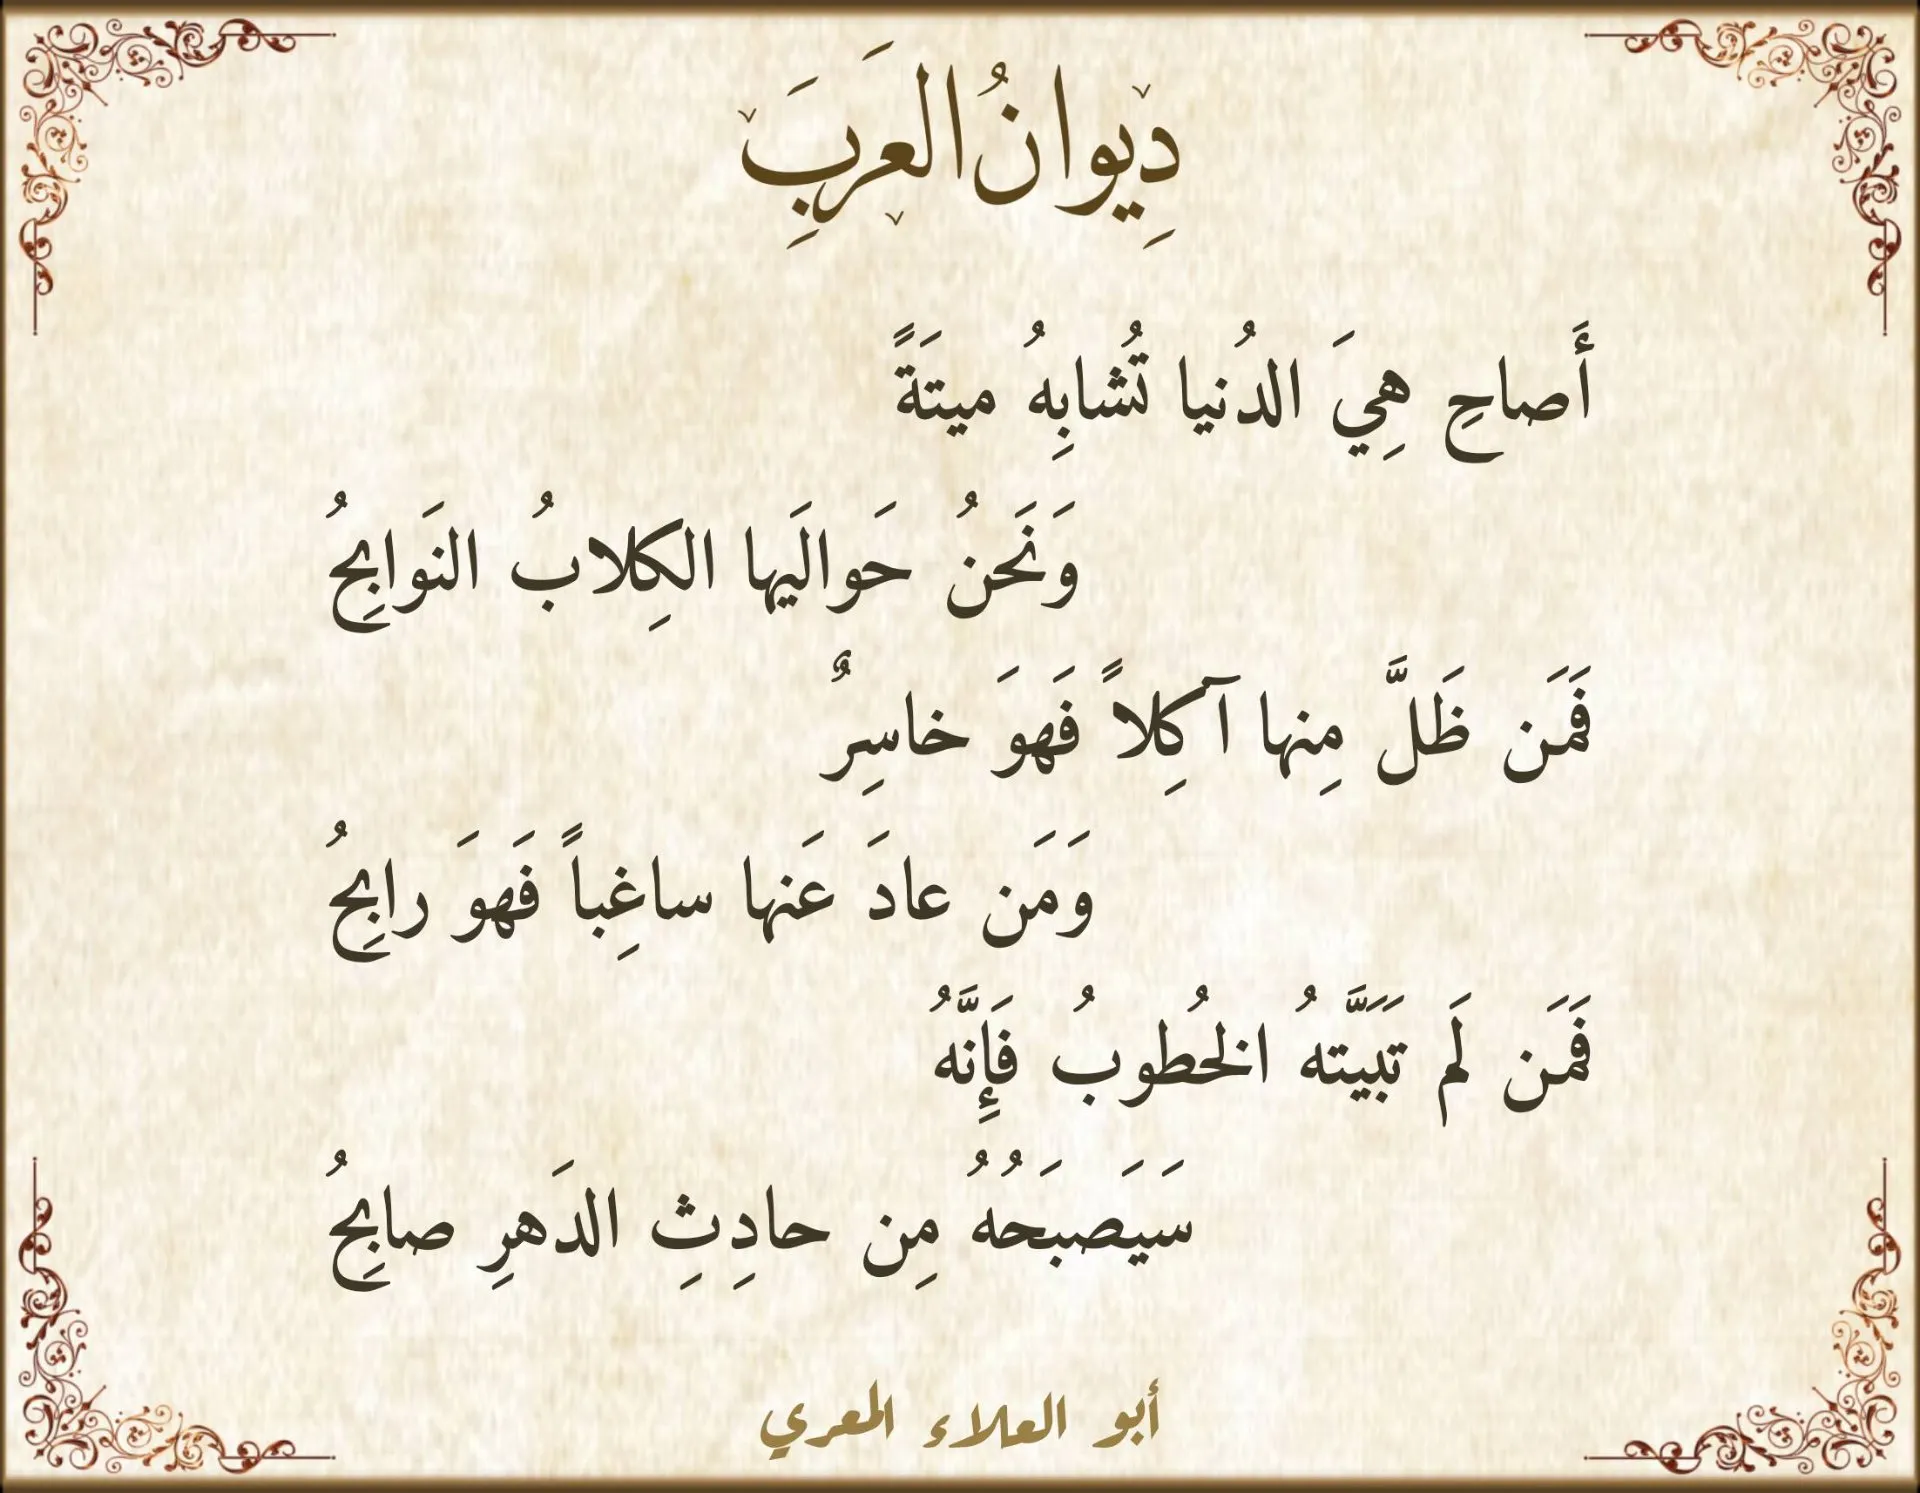 دِيوانُ العَرَبَِ
أَصاحِ هِيَ الدُنيا تُشابِهُ ميتَةً
وَنَحنُ حَوالَيها الكِلابُ النَوابِحُ
فَمَن ظَلَّ مِنها آكِلاً فَهوَ خاسِرٌ
وَمَن عادَ عَنها ساغِباً فَهوَ رابِحُ
فَمَن لَم تَبَيَّتهُ الخُطوبُ فَإِنَّهُ
سَيَصبَحُهُ مِن حادِثِ الدَهرِ صابِحُ
أبو العلاء المعري